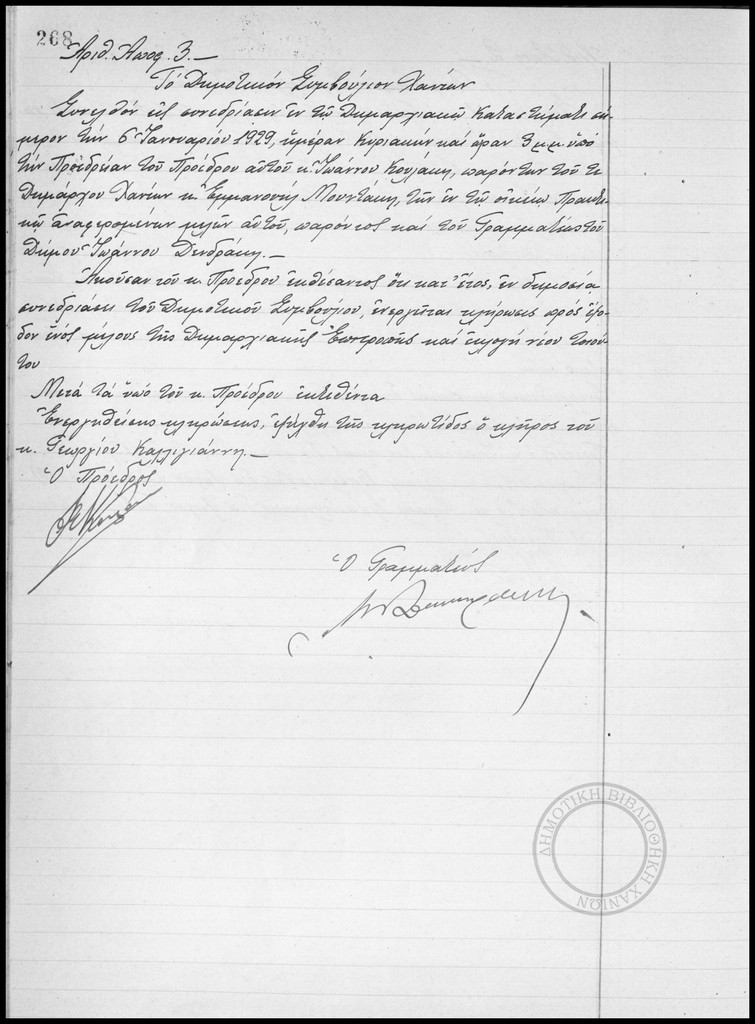 268
Ἀριθ. Ἀποφ. 3.—
Τό Δημοτικόν Συμβούλιον Χανίων
Συνελθόν εἰς συνεδρίασιν ἐν τῷ Δημαρχιακῷ Καταστήματι σή-
μερον τήν 6 Ἰανουαρίου 1929, ἡμέραν Κυριακήν καί ὥραν 3 μ.μ. ὑπό
τήν Προεδρίαν τοῦ Προέδρου αὐτοῦ κ. Ἰωάννου Κουλάκη, παρόντων τοῦ τε
Δημάρχου Χανίων κ. Ἐμμανουήλ Μουντάκη, τῶν ἐν τῷ οἰκείῳ Πρακτι-
κῷ ἀναφερομένων μελῶν αὐτοῦ, παρόντος καί τοῦ Γραμματέως τοῦ
Δήμου Ἰωάννου Δενδράκη.—
Ἀκοῦσαν τοῦ κ. Προέδρου ἐκθέσαντος ὅτι κατ' ἔτος, ἐν δημοσίᾳ
συνεδριάσει τοῦ Δημοτικοῦ Συμβουλίου, ἐνεργεῖται κλήρωσις πρός ἔξο-
δον ἑνός μέλους τῆς Δημαρχιακῆς Ἐπιτροπῆς καί ἐκλογή νέου τοιού-
του
Μετά τά ὑπό τοῦ κ. Προέδρου ἐκτεθέντα
Ἐνεργηθείσης κληρώσεως, ἐξήχθη τῆς κληρωτίδος ὁ κλῆρος τοῦ
κ. Γεωργίου Καλλιγιάννη.—
Ὁ Πρόεδρος
Ὁ Γραμματεύς
ΔΗΜΟΤΙΚΗ ΒΙΒΛΙΟΘΗΚΗ ΧΑΝΙΩΝ